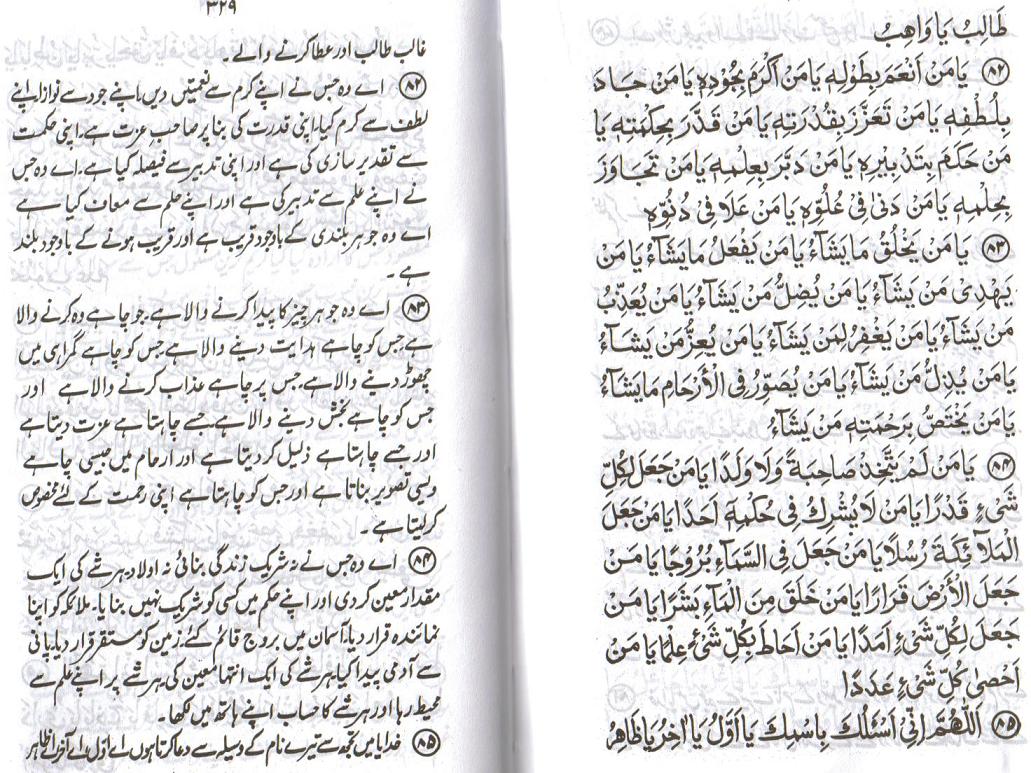 طَالِبُ يَا وَاهِبُ
(۸۲) يَا مَنْ اَنْعَمَ بِطَوْلِهٖ يَا مَنْ اَكْرَمَ بِجُوْدِهٖ يَا مَنْ جَادَ
بِلُطْفِهٖ يَا مَنْ تَعَزَّزَ بِقُدْرَتِهٖ يَا مَنْ قَدَّرَ بِحِكْمَتِهٖ يَا
مَنْ حَكَمَ بِتَدْبِيْرِهٖ يَا مَنْ دَبَّرَ بِعِلْمِهٖ يَا مَنْ تَجَاوَزَ
بِحِلْمِهٖ يَا مَنْ دَنٰى فِىْ عُلُوِّهٖ يَا مَنْ عَلَا فِىْ دُنُوِّهٖ
(۸۳) يَا مَنْ يَخْلُقُ مَا يَشَآءُ يَا مَنْ يَفْعَلُ مَا يَشَآءُ يَا مَنْ
يَهْدِىْ مَنْ يَشَآءُ يَا مَنْ يُضِلُّ مَنْ يَشَآءُ يَا مَنْ يُعَذِّبُ
مَنْ يَشَآءُ يَا مَنْ يَغْفِرُ لِمَنْ يَشَآءُ يَا مَنْ يُعِزُّ مَنْ يَشَآءُ
يَا مَنْ يُذِلُّ مَنْ يَشَآءُ يَا مَنْ يُصَوِّرُ فِى الْأَرْحَامِ مَا يَشَآءُ
يَا مَنْ يَخْتَصُّ بِرَحْمَتِهٖ مَنْ يَشَآءُ
(۸۴) يَا مَنْ لَمْ يَتَّخِذْ صَاحِبَةً وَلَا وَلَدًا يَا مَنْ جَعَلَ لِكُلِّ
شَىْءٍ قَدْرًا يَا مَنْ لَا يُشْرِكُ فِىْ حُكْمِهٖٓ اَحَدًا يَا مَنْ جَعَلَ
الْمَلَآئِكَةَ رُسُلًا يَا مَنْ جَعَلَ فِى السَّمَآءِ بُرُوْجًا يَا مَنْ
جَعَلَ الْأَرْضَ قَرَارًا يَا مَنْ خَلَقَ مِنَ الْمَآءِ بَشَرًا يَا مَنْ
جَعَلَ لِكُلِّ شَىْءٍ اَمَدًا يَا مَنْ اَحَاطَ بِكُلِّ شَىْءٍ عِلْمًا يَا مَنْ
اَحْصٰى كُلَّ شَىْءٍ عَدَدًا
(۸۵) اَللّٰهُمَّ اِنِّىْ اَسْئَلُكَ بِاسْمِكَ يَا اَوَّلُ يَا اٰخِرُ يَا ظَاهِرُ
۳۲۹
غالب طالب اور عطا کرنے والے۔
(۸۲) اے وہ جس نے اپنے کرم سے نعمتیں دیں، اپنے جود سے نوازا، اپنے
لطف سے کرم کیا، اپنی قدرت کی بنا پر صاحب عزت ہے، اپنی حکمت
سے تقدیر سازی کی ہے اور اپنی تدبیر سے فیصلہ کیا ہے۔ اے وہ جس
نے اپنے علم سے تدبیر کی ہے اور اپنے حلم سے معاف کیا ہے
اے وہ جو ہر بلندی کے باوجود قریب ہے اور قریب ہونے کے باوجود بلند
ہے۔
(۸۳) اے وہ جو ہر چیز کا پیدا کرنے والا ہے، جو چاہے وہ کرنے والا
ہے، جس کو چاہے ہدایت دینے والا ہے، جس کو چاہے گمراہی میں
چھوڑ دینے والا ہے، جس پر چاہے عذاب کرنے والا ہے اور
جس کو چاہے بخش دینے والا ہے، جسے چاہتا ہے عزت دیتا ہے
اور جسے چاہتا ہے ذلیل کر دیتا ہے اور ارحام میں جیسی چاہے
ویسی تصویر بناتا ہے اور جس کو چاہتا ہے اپنی رحمت کے لئے مخصوص
کر لیتا ہے۔
(۸۴) اے وہ جس نے نہ شریک زندگی بنائی نہ اولاد، ہر شے کی ایک
مقدار معین کر دی اور اپنے حکم میں کسی کو شریک نہیں بنایا۔ ملائکہ کو اپنا
نمائندہ قرار دیا، آسمان میں بروج قائم کئے، زمین کو مستقر قرار دیا، پانی
سے آدمی پیدا کیا، ہر شے کی ایک انتہا معین کی، ہر شے پر اپنے علم سے
محیط رہا اور ہر شے کا حساب اپنے ہاتھ میں لکھا۔
(۸۵) خدایا میں تجھ سے تیرے نام کے وسیلہ سے دعا کرتا ہوں اے اول اے آخر اے ظاہر